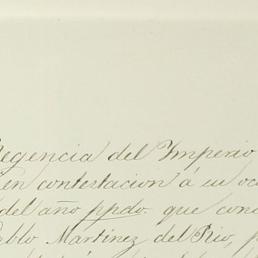 Regencia del Imperio
en contestacion á su
del año ppdo. que
Martinez del Rio,